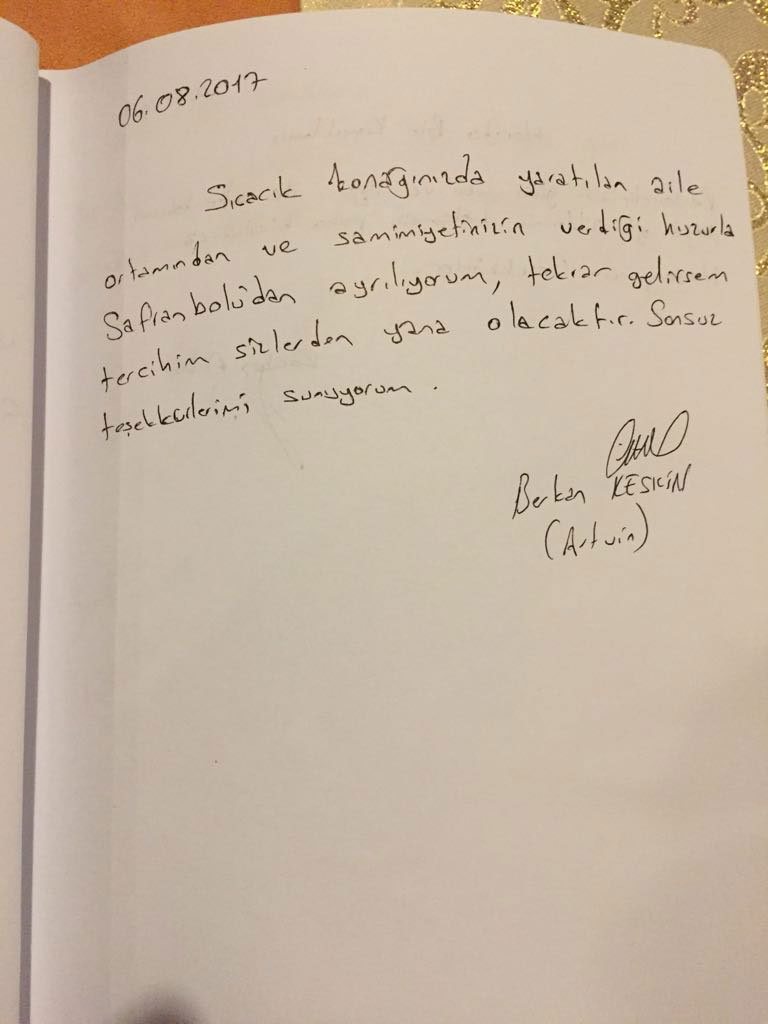 06.08.2017
Sıcacık konağınızda yaratılan aile
ortamından ve samimiyetinizin verdiği huzurla
Safranbolu'dan ayrılıyorum, tekrar gelirsem
tercihim sizlerden yana olacaktır. Sonsuz
teşekkürlerimi sunuyorum.
Berkan KESKİN
(Artvin)